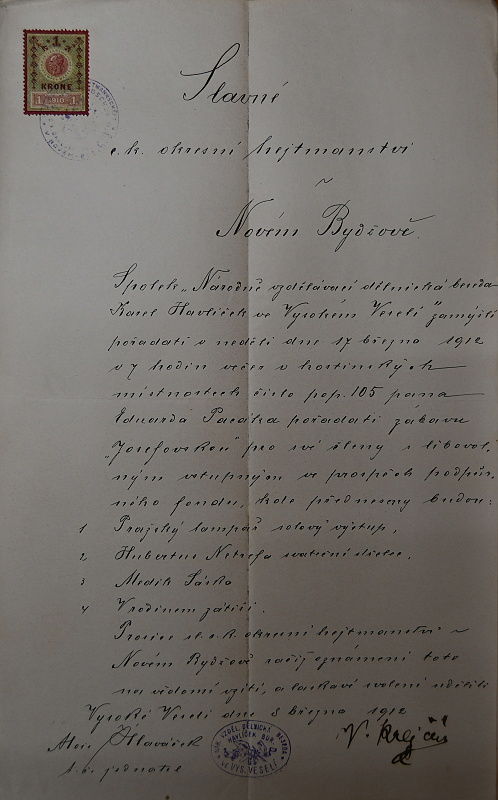 1
KRONE
1 1910 1
Slavné
c.k. okresní hejtmanství
v
Novém Bydžově.
Spolek „Národně vzdělávací dělnická beseda
Karel Havlíček ve Vysokém Veselí" zamýšlí
pořádati v neděli dne 17 března 1912
v 7 hodin večer v hostinských
místnostech číslo pop. 105 pana
Eduarda Pacáka pořádati zábavu
„Josefovskou" pro své členy s libovol
ným vstupným ve prospěch podpůr
ného fondu, kde předneseny budou:
1 Pražský lampář solový výstup,
2 Hubertus Netrefa
3 Medik
4 V zátiší.
Prosíce sl. c.k. okresní hejtmanství v
Novém Bydžově račiž oznámení toto
na vědomí vzíti, a laskavě svolení uděliti
Vysoké Veselí dne 8 března 1912
Alois Hlaváček
t.č. jednatel
V. Krejčí
NÁR. VZDĚL. DĚLNICKÁ BESEDA
VE VYS. VESELÍ